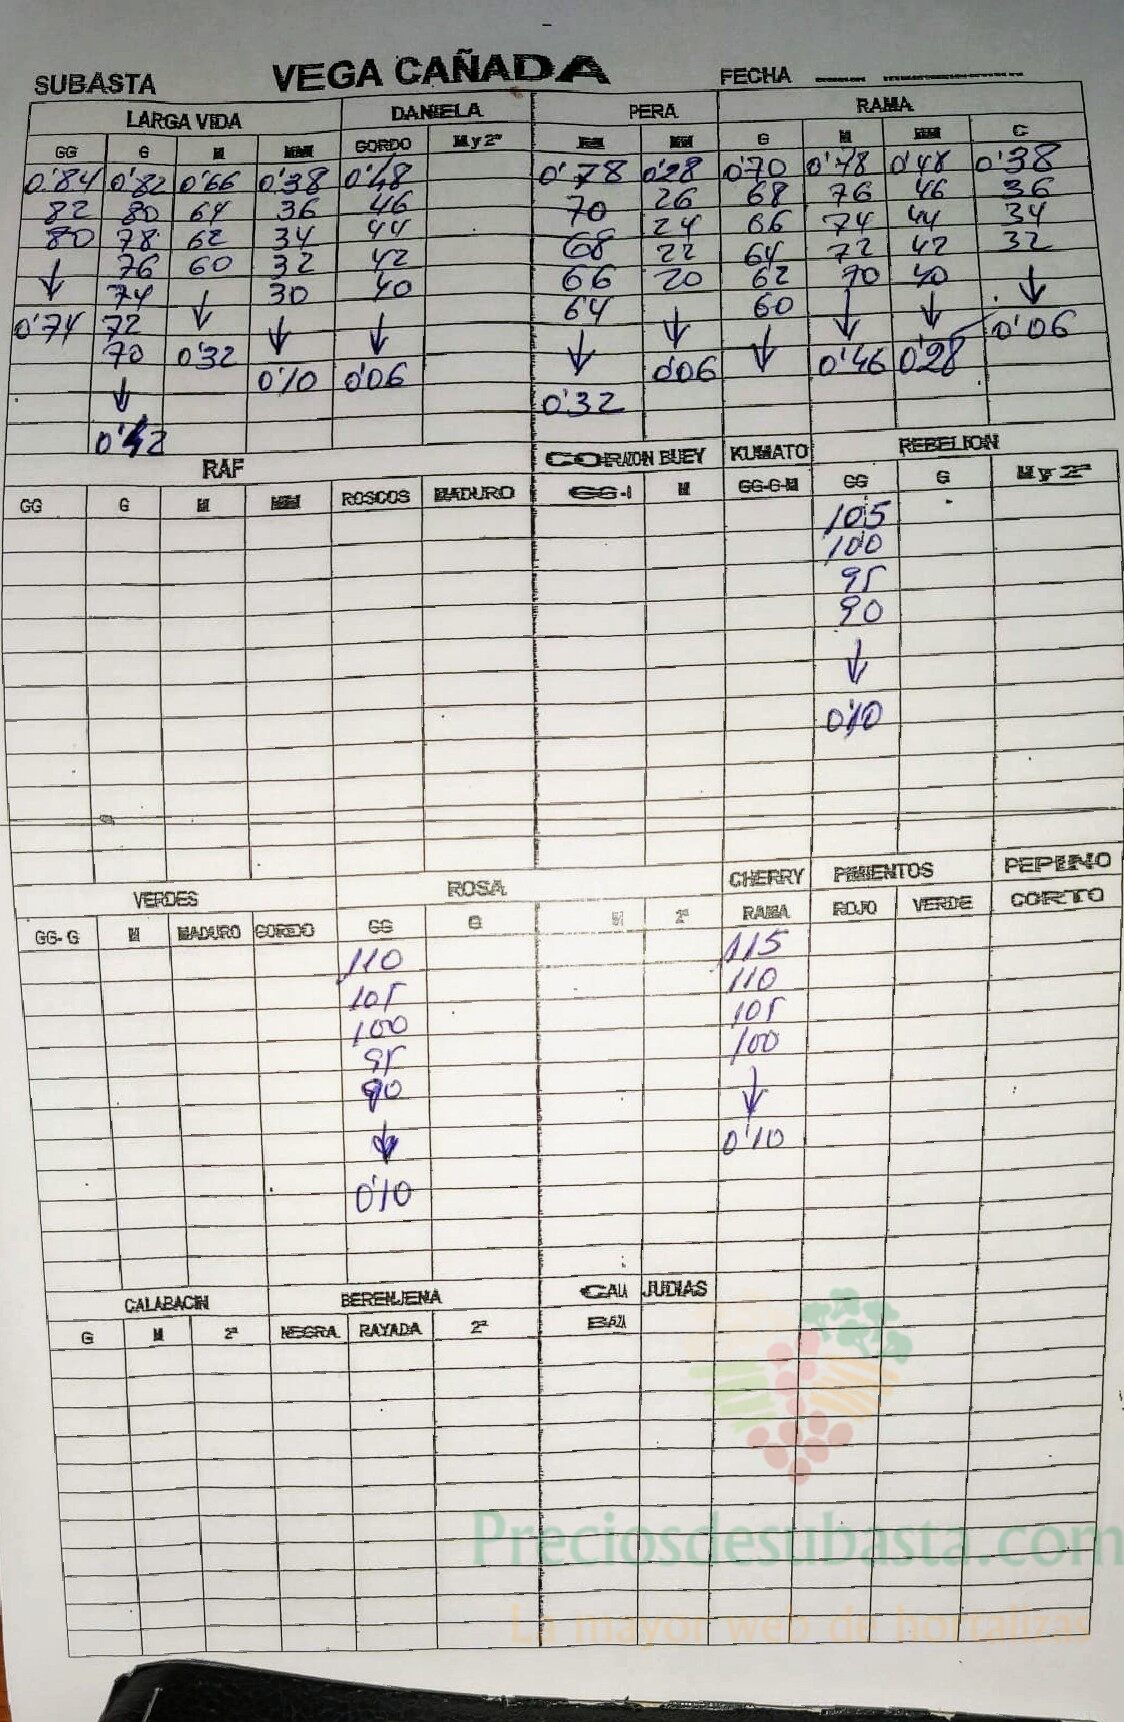 SUBASTA VEGA CAÑADA FECHA
LARGA VIDA DANIELA PERA RAMA
GG G M MM GORDO M y 2ª M MM G M MM C
0'84 0'82 0'66 0'38 0'48 0'78 0'28 0'70 0'78 0'48 0'38
82 80 64 36 46 70 26 68 76 46 36
80 78 62 34 44 68 24 66 74 44 34
76 60 32 42 66 22 64 72 42 32
↓ 74 ↓ 30 40 64 20 62 70 40 ↓
0'74 72 ↓ ↓ ↓ ↓ 60 ↓ ↓ 0'06
70 0'32 0'10 0'06 0'06 ↓ 0'46 0'28
↓ 0'32
0'42
RAF CORAZON BUEY KUMATO REBELION
GG G M MM ROSCOS MADURO GG- M GG-G-M GG G M y 2ª
105
100
95
90
↓
0'10
VERDES ROSA CHERRY PIMIENTOS PEPINO
GG- G M MADURO GORDO GG G M 2ª RAMA ROJO VERDE CORTO
110 115
105 110
100 105
95 100
90 ↓
↓ 0'10
0'10
CALABACIN BERENJENA CALA JUDIAS
G M 2ª NEGRA RAYADA 2ª BAZA
Preciosdesubasta.com
La mayor web de hortalizas